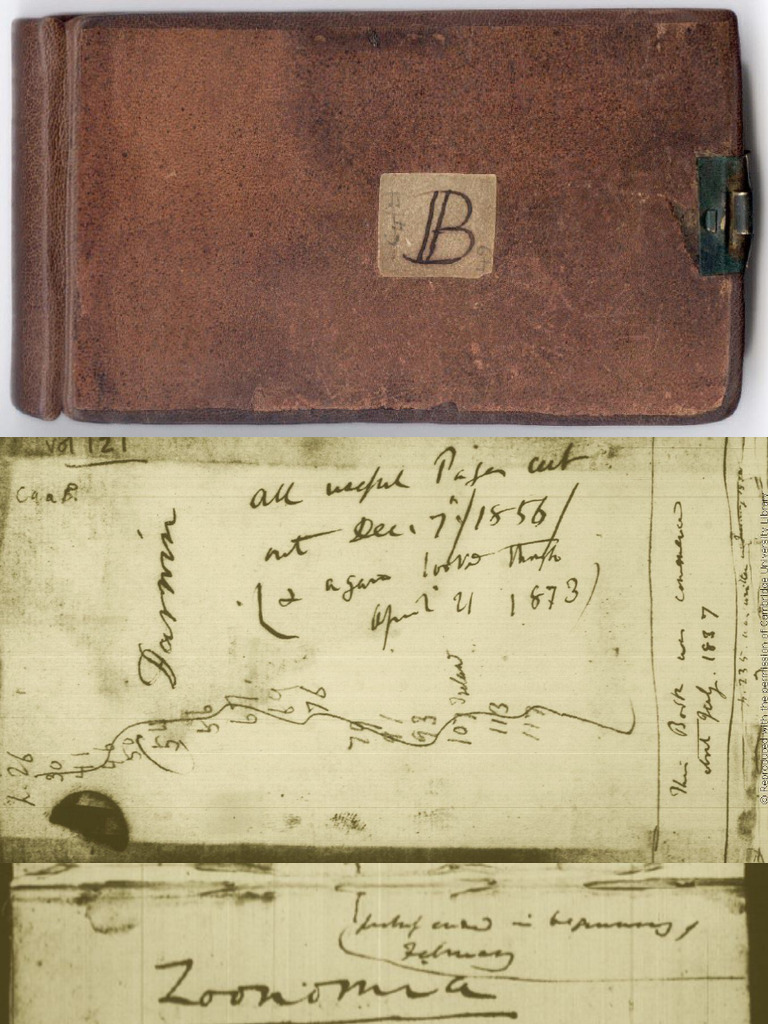 B
Vol 121
all useful Pages cut
out Dec. 7th/1856/
(& again looked through
April 21 1873)
Darwin
p. 26
30
41
50
54
56
76
79
93
107
113
117
This Book was commenced
about July. 1837
p. 235 was written in January 1838
© Reproduced with the permission of Cambridge University Library
probably ended in beginning of
February
Zoonomia